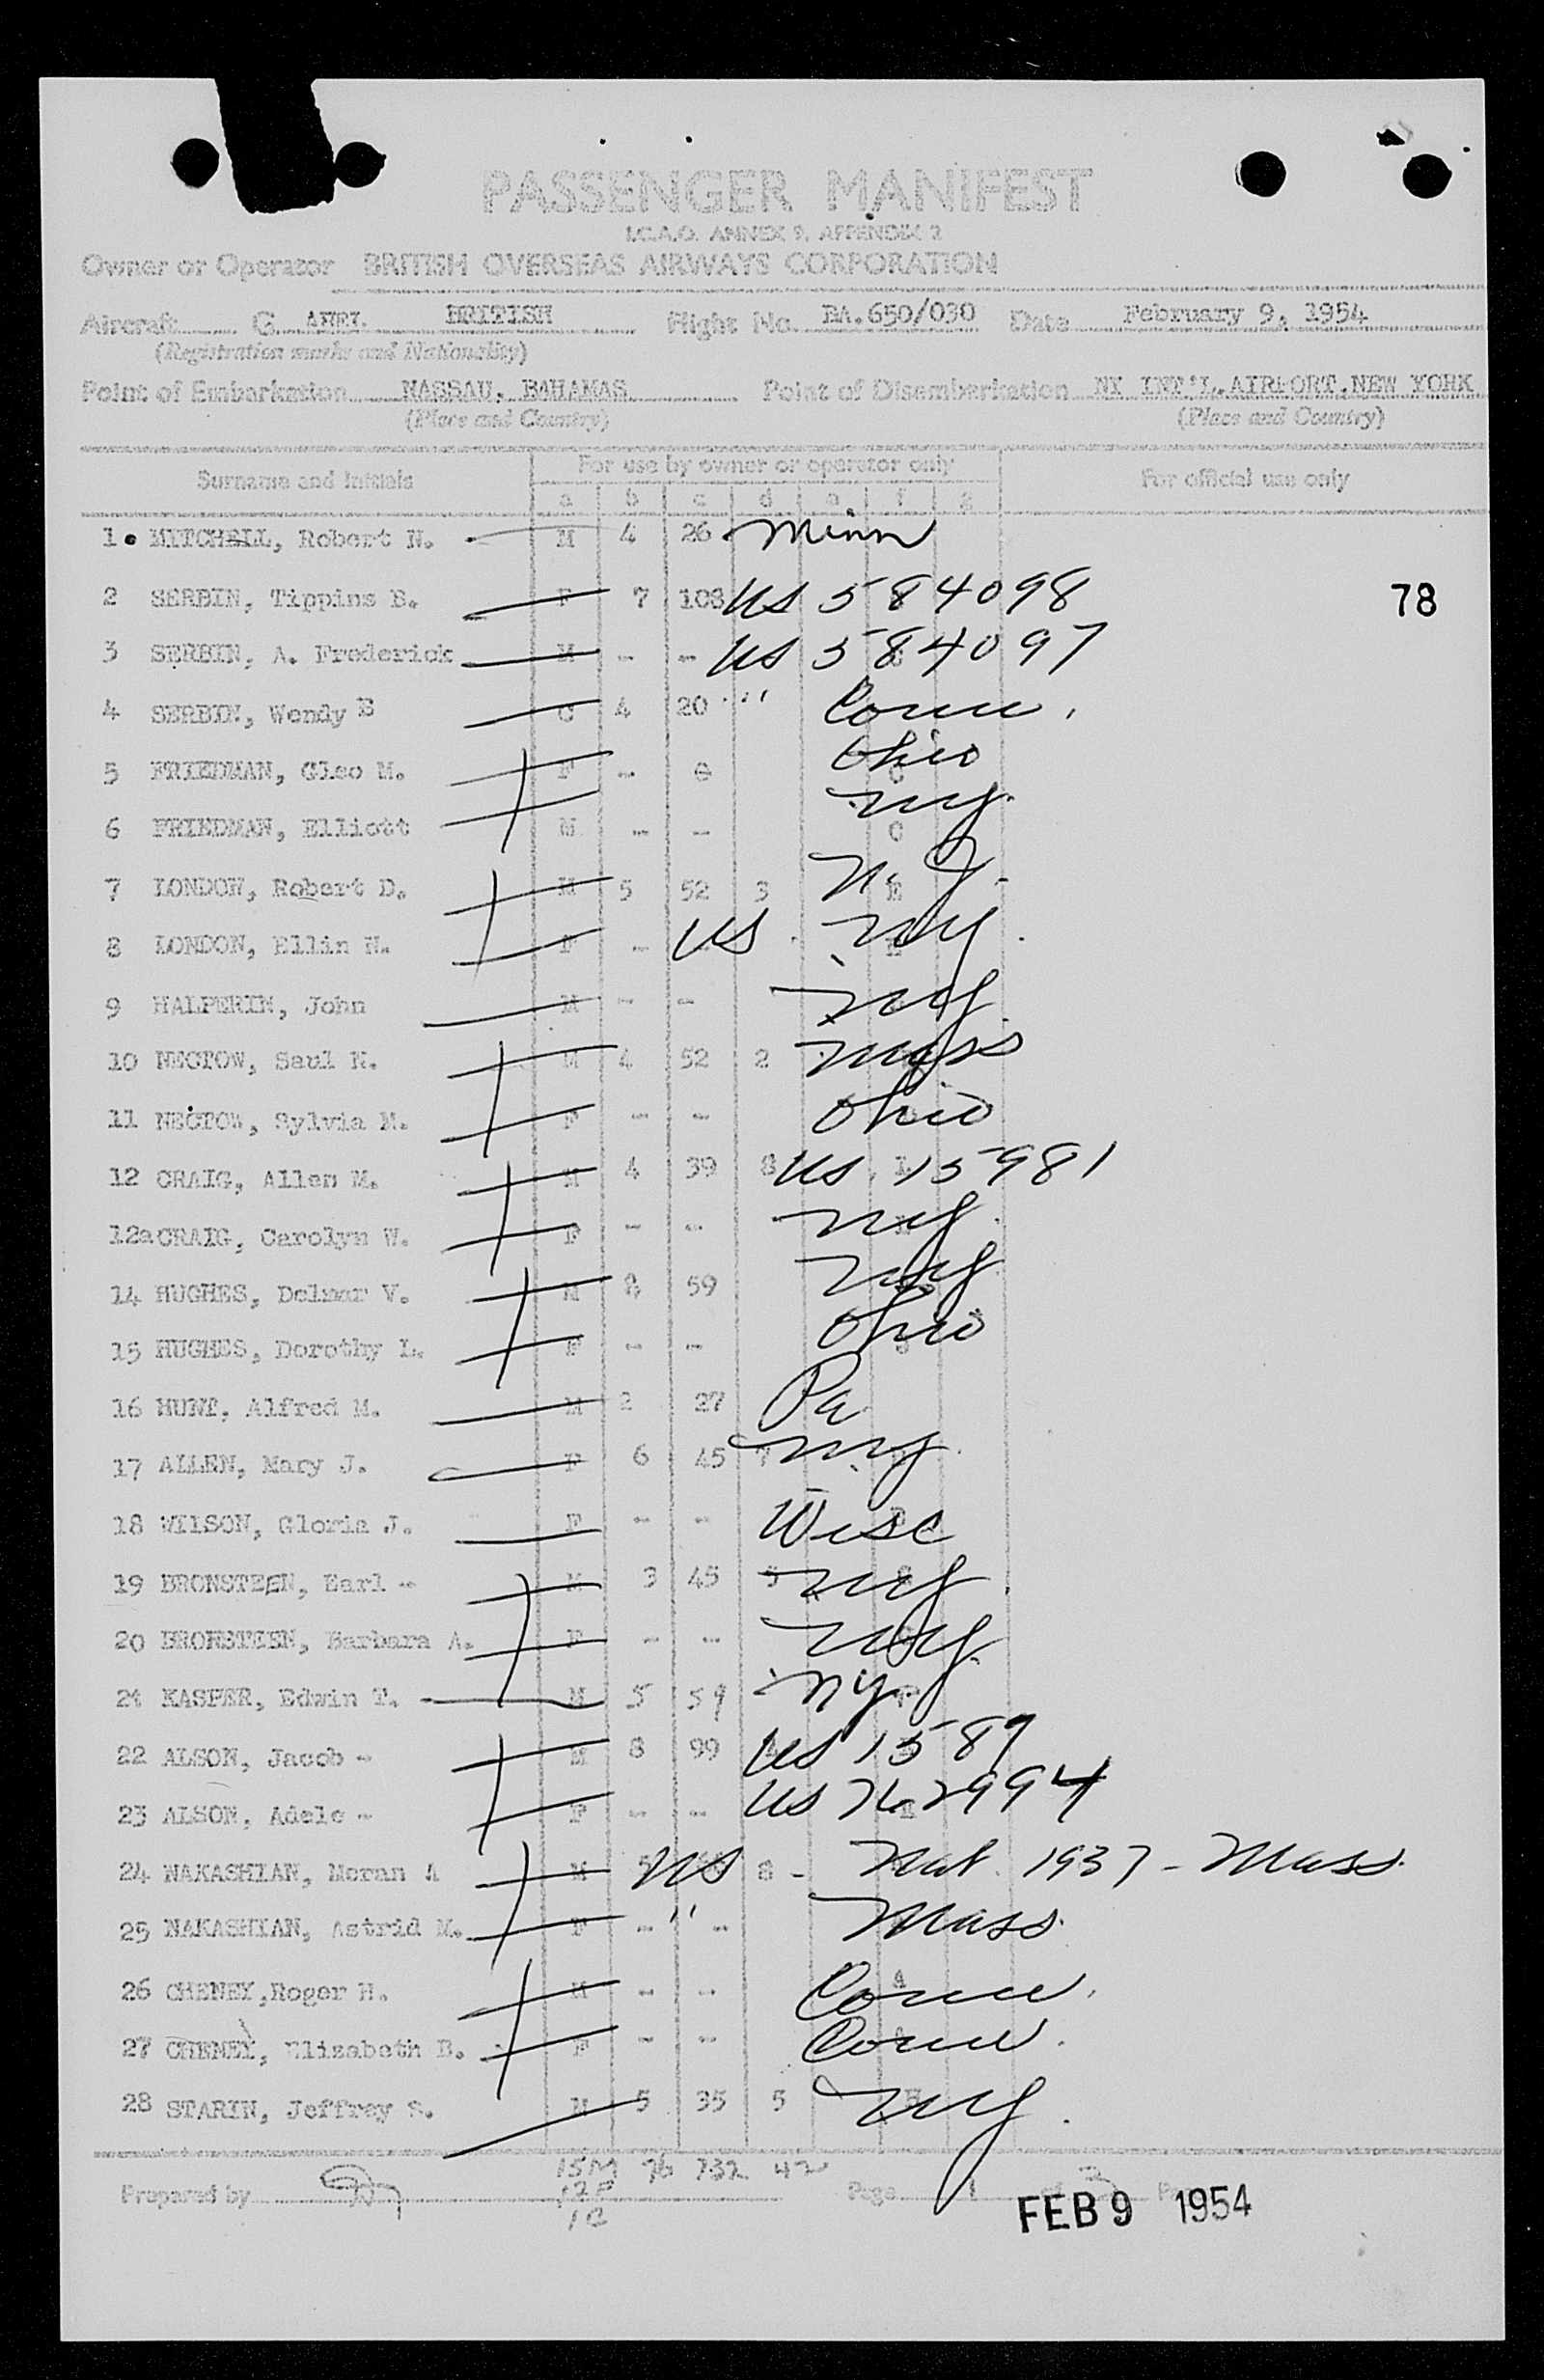 PASSENGER MANIFEST
I.C.A.O. ANNEX 9, APPENDIX 2
Owner or Operator BRITISH OVERSEAS AIRWAYS CORPORATION
Aircraft G. BRITISH Flight No. BA.650/030 Date February 9, 1954
(Registration marks and Nationality)
Point of Embarkation NASSAU, BAHAMAS Point of Disembarkation NY INT'L.AIRPORT.NEW YORK
(Place and Country) (Place and Country)
Surname and Initials For use by owner or operator only For official use only
a b c d e f g
1. MITCHELL, Robert N. M 4 26 Minn
2 SERBIN, Tippins B. F 7 108 US 584098 78
3 SERBIN, A. Frederick M - - US 584097
4 SERBIN, Wendy B C 4 20 " Conn.
5 FRIEDMAN, Cleo M. F - Ohio
6 FRIEDMAN, Elliott M - - C NY.
7 LONDON, Robert D. M 5 52 3 N.J.
8 LONDON, Ellin N. F - US NY.
9 HALPERIN, John M - - NY.
10 NECTOW, Saul K. M 4 52 2 Mass
11 NECTOW, Sylvia M. F - - Ohio
12 CRAIG, Allen M. M 4 39 8 US 15981
12a CRAIG, Carolyn W. F - - NY.
14 HUGHES, Delmar V. M 59 NY
15 HUGHES, Dorothy L. F - - Ohio
16 HUNT, Alfred M. M 2 27 Pa
17 ALLEN, Mary J. F 6 45 7 NY.
18 WILSON, Gloria J. F - - Wisc
19 BRONSTEEN, Earl - M 3 45 5 NY.
20 BRONSTEEN, Barbara A. F - - NY.
21 KASPER, Edwin T. M 5 59 NY.
22 ALSON, Jacob - M 8 99 US 1589
23 ALSON, Adele - F - - US 762994
24 NAKASHIAN, Moran A M 5 US 8 - Nat. 1937 - Mass.
25 NAKASHIAN, Astrid M. F - " - Mass.
26 CHENEY,Roger H. M - - A Conn.
27 CHENEY, Elizabeth B. F - - Conn.
28 STARIN, Jeffrey S. M 5 35 5 NY.
15M 76 732 42
Prepared by Page 1 of 2
12F
1C
FEB 9 1954